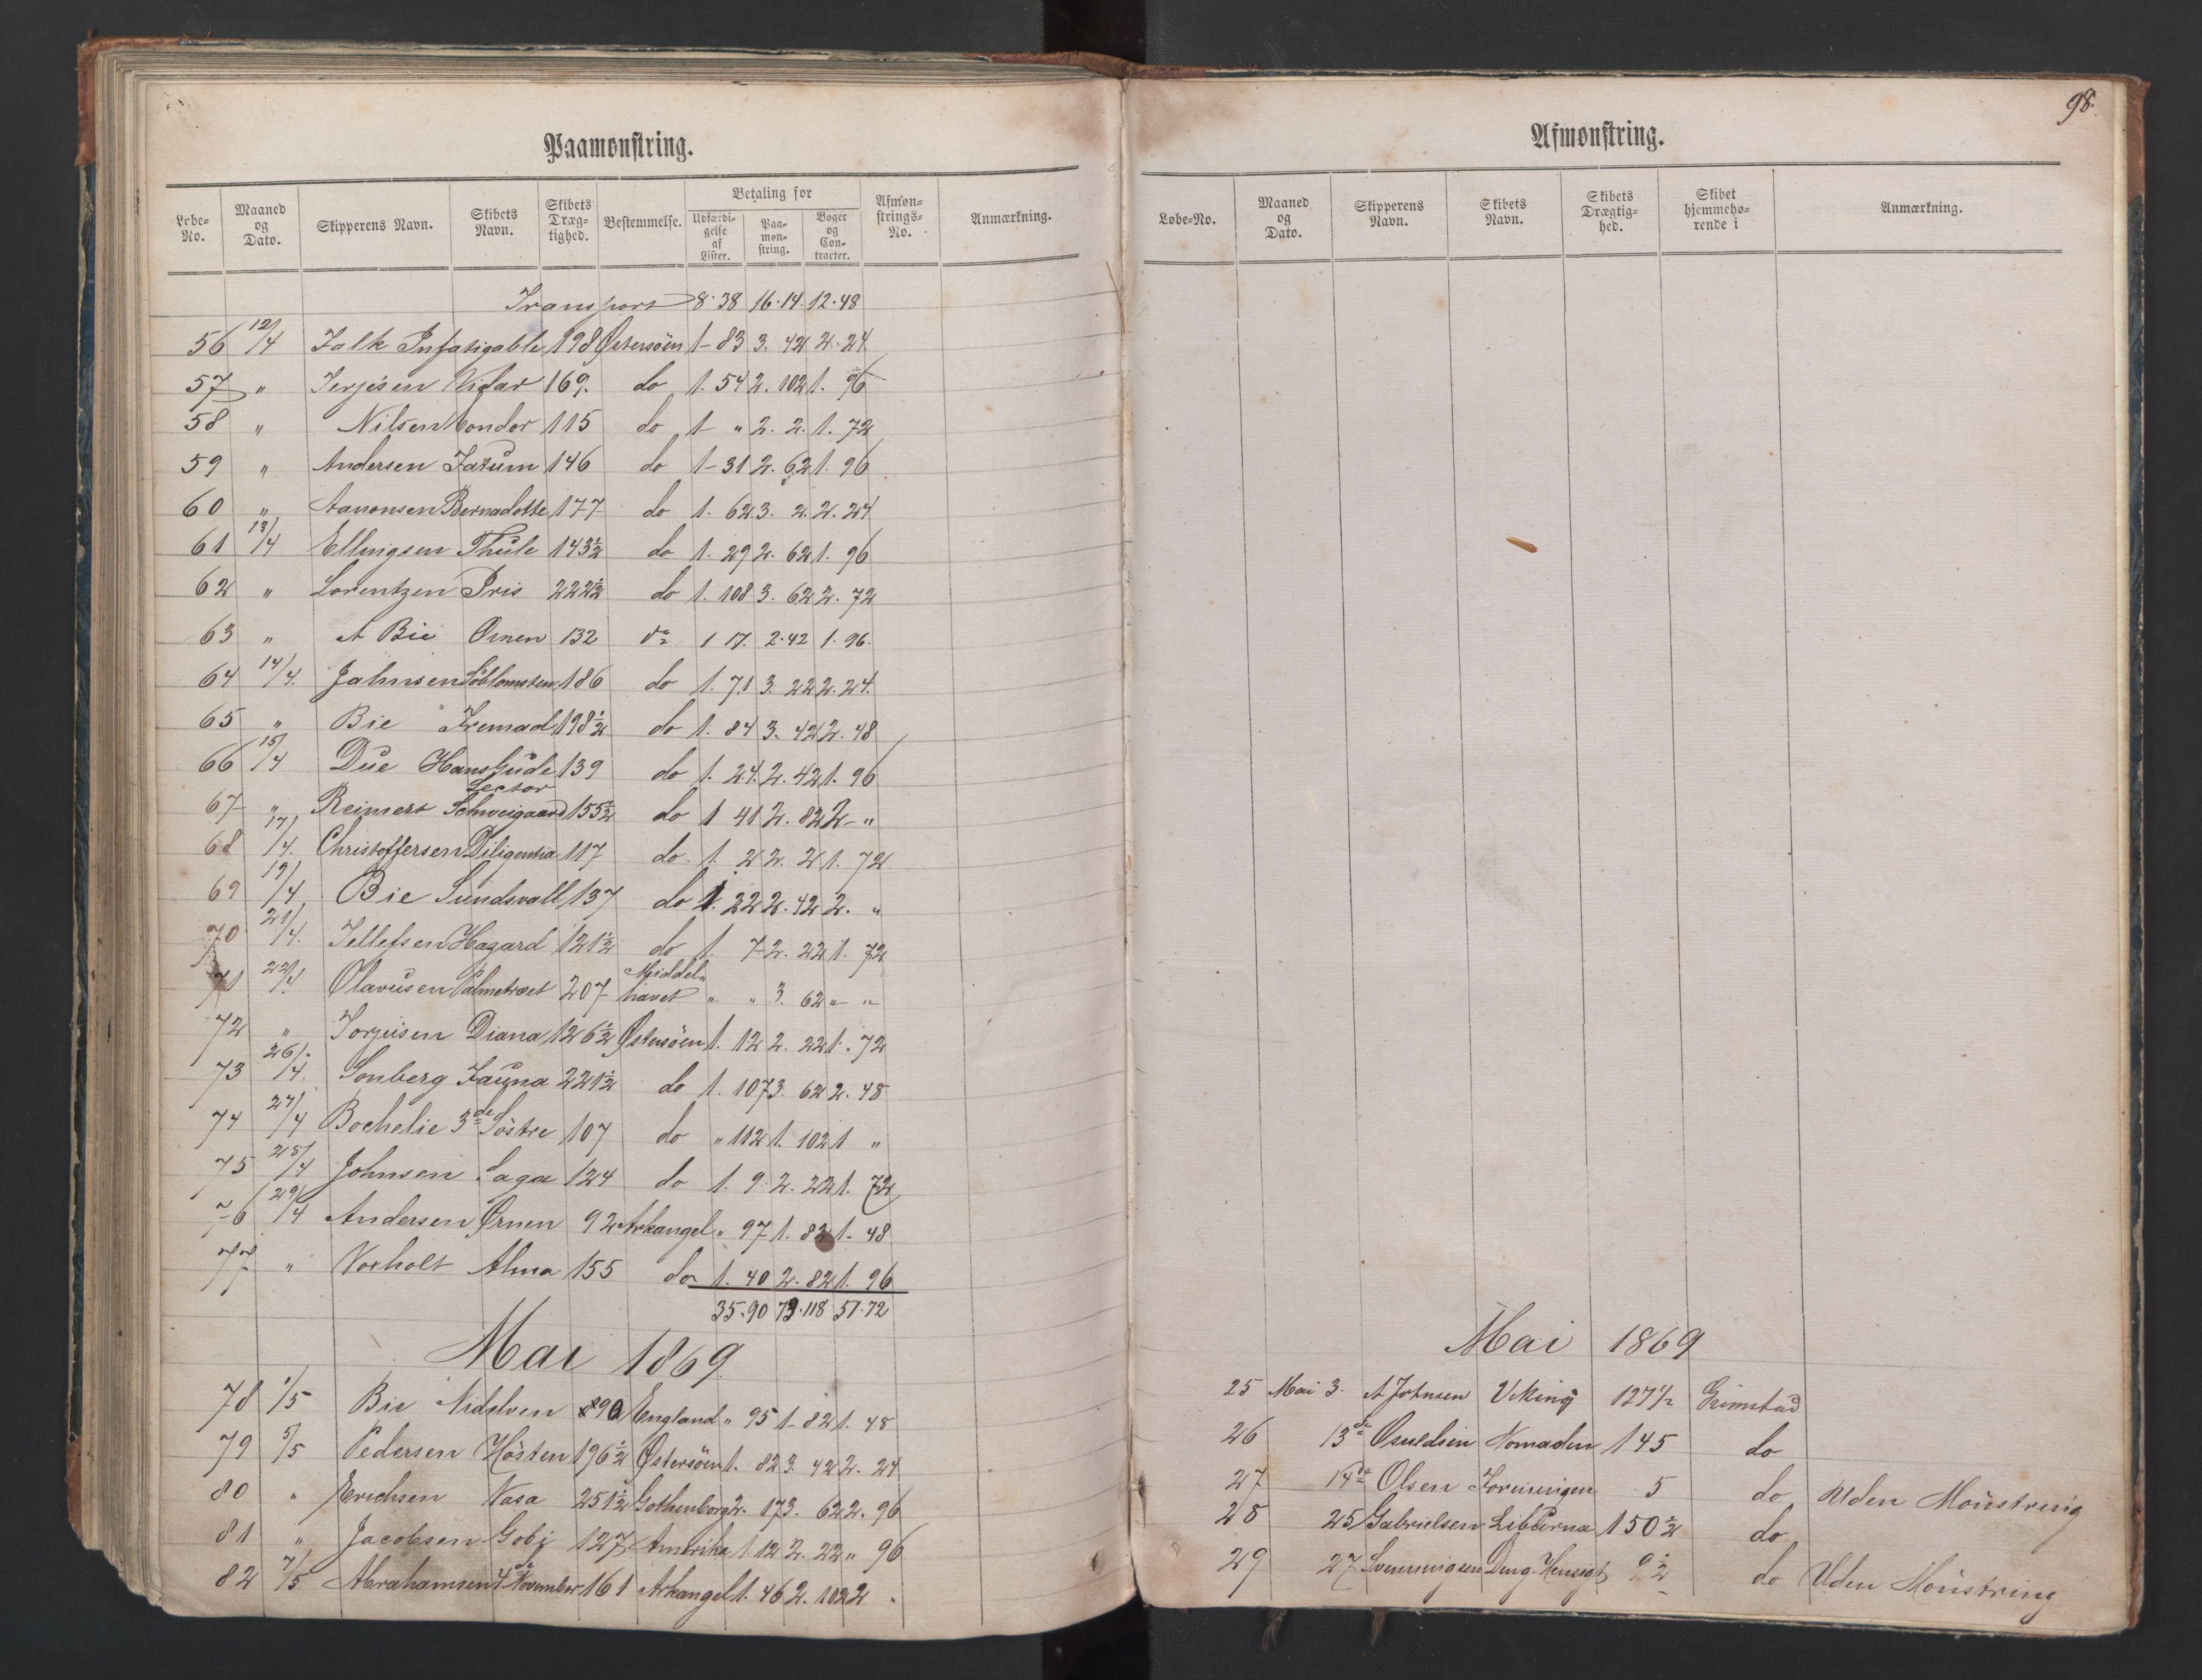 Paamønstring.
Løbe-No. Maaned og Dato. Skipperens Navn. Skibets Navn. Skibets Drægtighed. Bestemmelse. Betaling for Udfærdigelse af Lister. Paamønstring. Bøger og Contracter. Afmønstrings-No. Anmærkning.
Transport 8.38 16.14. 12.48
56 12/4 Falk Infatigable 198 Østersöen 1-83 3. 42 2.24
57 " Terjesen Vidar 169. do 1.54 2.102 1.96
58 " Nilsen Condor 115 do 1 " 2. 2. 1. 72
59 " Andersen Fatum 146 do 1-31 2. 62 1. 96
60 " Aanonsen Bernadotte 177 do 1. 62 3. 2. 2. 24
61 13/4 Ellingsen Thule 143½ do 1. 29 2. 62 1. 96
62 " Lorentzen Iris 222½ do 1. 108 3. 62 2. 72
63 " A Bie Ørnen 132 do 1 17. 2.42 1.96.
64 14/4. Jahnsen Söblomsten 186 do 1. 71 3. 22 2.24.
65 " Bie Fremad 198½ do 1. 84 3. 42 2. 48
66 15/4 Due Hans Gude 139 do 1. 24. 2. 42 1. 96
67 " Reimert Lector Schweigaard 155½ do 1 41 2. 82 2- "
68 17/4. Christoffersen Diligentia 117 do. 1. 2 2. 2 1. 72
69 19/4 Bie Sundsvall 137 do 1. 22 2. 42 2. "
70 21/4. Tellefsen Hazard 121½ do 1. 7 2. 22 1. 72
71 22/4 Olavusen Palmetræet 207 Middelhavet " " 3. 62 " "
72 " Torjusen Diana 126½ Østersöen 1. 12 2. 22 1. 72
73 26/4. Sonberg Fauna 221½ do 1. 107 3. 62 2. 48
74 27/4 Bochelie 3de Söstre 107 do " 112 1. 102 1 "
75 28/4 Johnsen Saga 124 do 1. 9. 2. 22 1. 72
76 29/4 Andersen Ørnen 92 Arkangel " 97 1. 82 1- 48
77 " Voxholt Alma 155 do 1. 40 2. 82 1. 96
35.90 73.118 51.72
Mai 1869.
78 1/5 Bie Nidelven 90 England " 95 1- 82 1. 48
79 5/5 Pedersen Hösten 196½ Østersöen 1. 82 3. 42 2. 24
80 " Erichsen Vasa 251½ Gothenborg 2. 17 3. 62 2. 96
81 " Jacobsen Gobi 127 Amerika 1 12 2. 22 " 96
82 7/5 Abrahamsen 4de November 161 Arkangel 1. 46 2. 102 2 "
98.
Afmønstring.
Løbe-No. Maaned og Dato. Skipperens Navn. Skibets Navn. Skibets Drægtighed. Skibet hjemmehørende i Anmærkning.
Mai 1869
25 Mai 3. A Johnsen Viking 127½ Grimstad
26 13de Osuldsen Nomaden 145 do
27 14de Olsen Foreningen 5 do Uden Mönstring
28 25 Gabrielsen Liburna 150½ do
29 27 Svenningsen Den g. Hensigt 9½ do Uden Mönstring